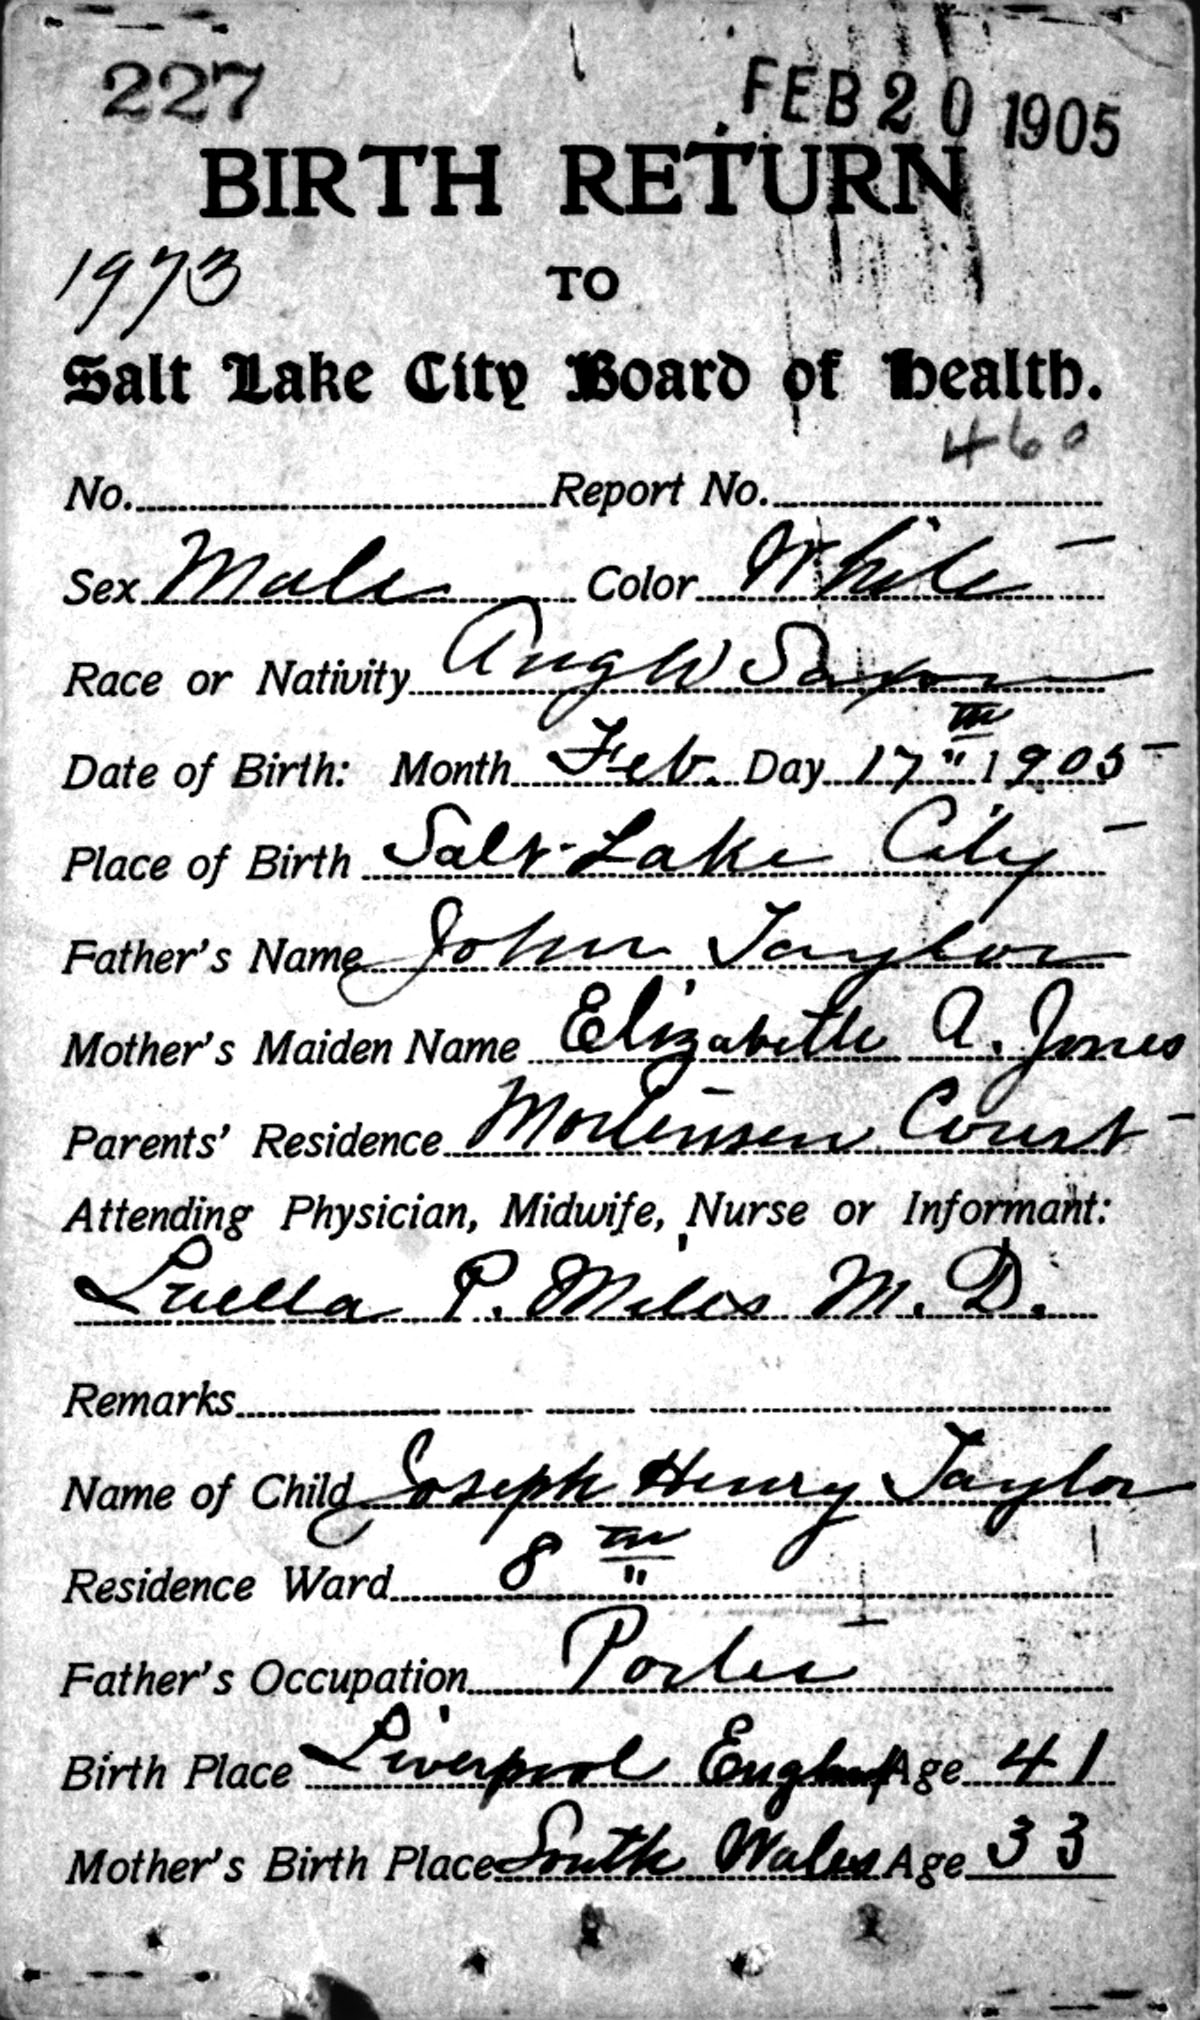 227
FEB 20 1905
BIRTH RETURN
1973
TO
Salt Lake City Board of Health.
460
No. Report No.
Sex Male Color White
Race or Nativity Anglo Saxon
Date of Birth: Month Feb. Day 17th 1905
Place of Birth Salt Lake City
Father's Name John Taylor
Mother's Maiden Name Elizabeth A. Jones
Parents' Residence Mortensen Court
Attending Physician, Midwife, Nurse or Informant:
Luella P. Miles M.D.
Remarks
Name of Child Joseph Henry Taylor
Residence Ward 8th
Father's Occupation Porter
Birth Place Liverpool England Age 41
Mother's Birth Place South Wales Age 33